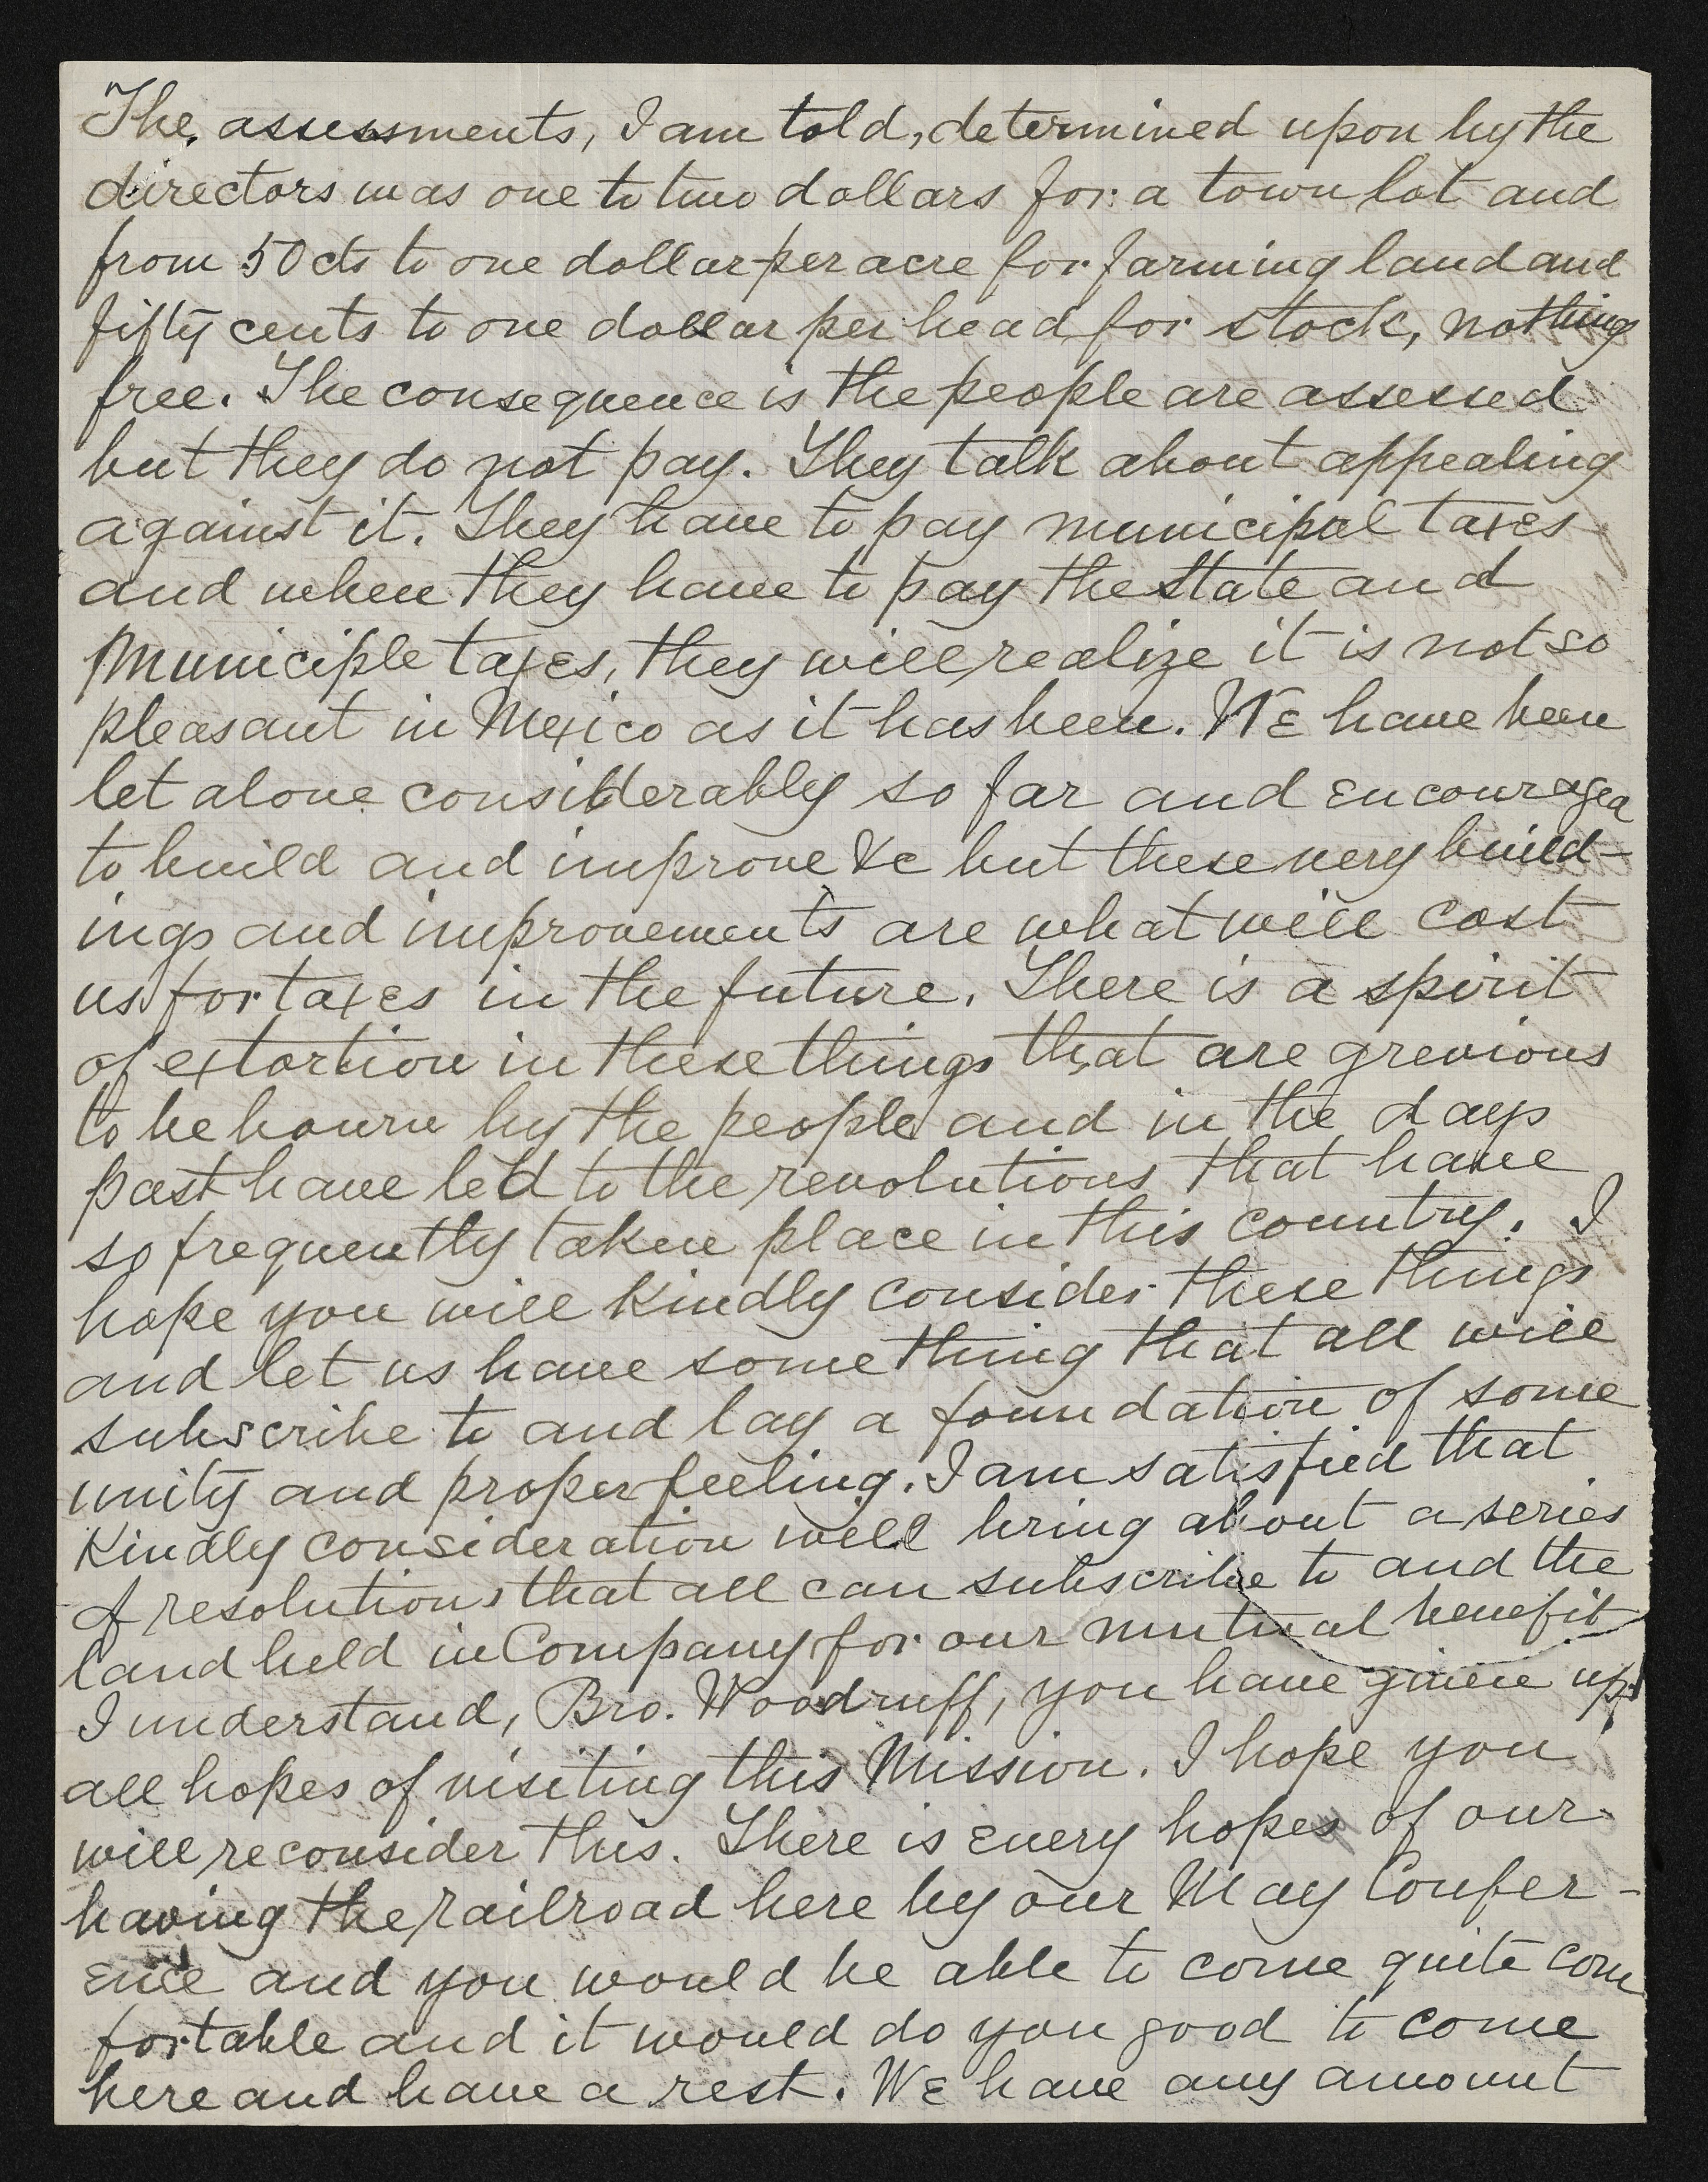 The assessments, I am told, determined upon by the
directors was one to two dollars for a town lot and
from 50 cts to one dollar per acre for farming land and
fifty cents to one dollar per head for stock, nothing
free. The consequence is the people are assessed
but they do not pay. They talk about appealing
against it. They have to pay municipal taxes
and when they have to pay the state and
Municiple taxes, they will realize it is not so
pleasant in Mexico as it has been. We have been
let alone considerably so far and encouraged
to build and improve &c but these very build-
ings and improvements are what will cost
us for taxes in the future. There is a spirit
of extortion in these things that are grevious
to be bourn by the people and in the days
past have led to the revolutions that have
so frequently taken place in this country. I
hope you will kindly consider these things
and let us have something that all will
subscribe to and lay a foundation of some
unity and proper feeling. I am satisfied that
kindly consideration will bring about a series
of resolutions that all can subscribe to and the
land held in Company for our mutual benefit
I understand, Bro. Woodruff, you have given up
all hopes of visiting this Mission. I hope you
will reconsider this. There is every hopes of our
having the railroad here by our May Confer-
ence and you would be able to come quite com
fortable and it would do you good to come
here and have a rest. We have any amount